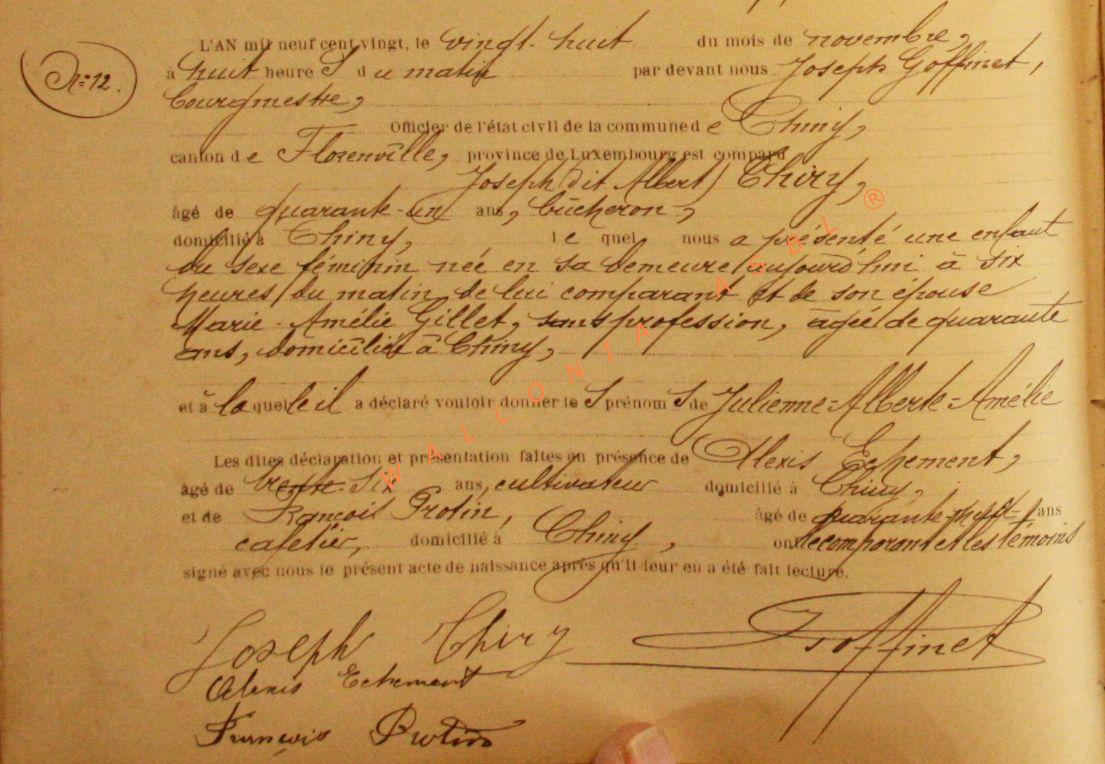 N° 12.
L'AN mil neuf cent vingt, le vingt-huit du mois de novembre,
à huit heure S du matin par devant nous Joseph Goffinet,
bourgmestre,
Officier de l'état civil de la commune de Chiny,
canton de Florenville, province de Luxembourg est comparu
Joseph (dit Albert) Thiry,
âgé de quarante-un ans, bûcheron,
domicilié à Chiny, le quel nous a présenté une enfant
du sexe féminin née en sa demeure aujourd'hui à six
heures du matin de lui comparant et de son épouse
Marie-Amélie Gillet, sans profession, âgée de quarante
ans, domiciliée à Chiny,
et à la quelle il a déclaré vouloir donner le S prénom S de Julienne-Alberte-Amélie
Les dites déclaration et présentation faites en présence de Alexis Echement,
âgé de trente-six ans, cultivateur domicilié à Chiny,
et de François Protin, âgé de quarante-neuf ans
cafetier, domicilié à Chiny, ont le comparant et les témoins
signé avec nous le présent acte de naissance après qu'il leur en a été fait lecture.
Joseph Thiry Goffinet
Alexis Echement
François Protin
WALLONIA ASBL ®